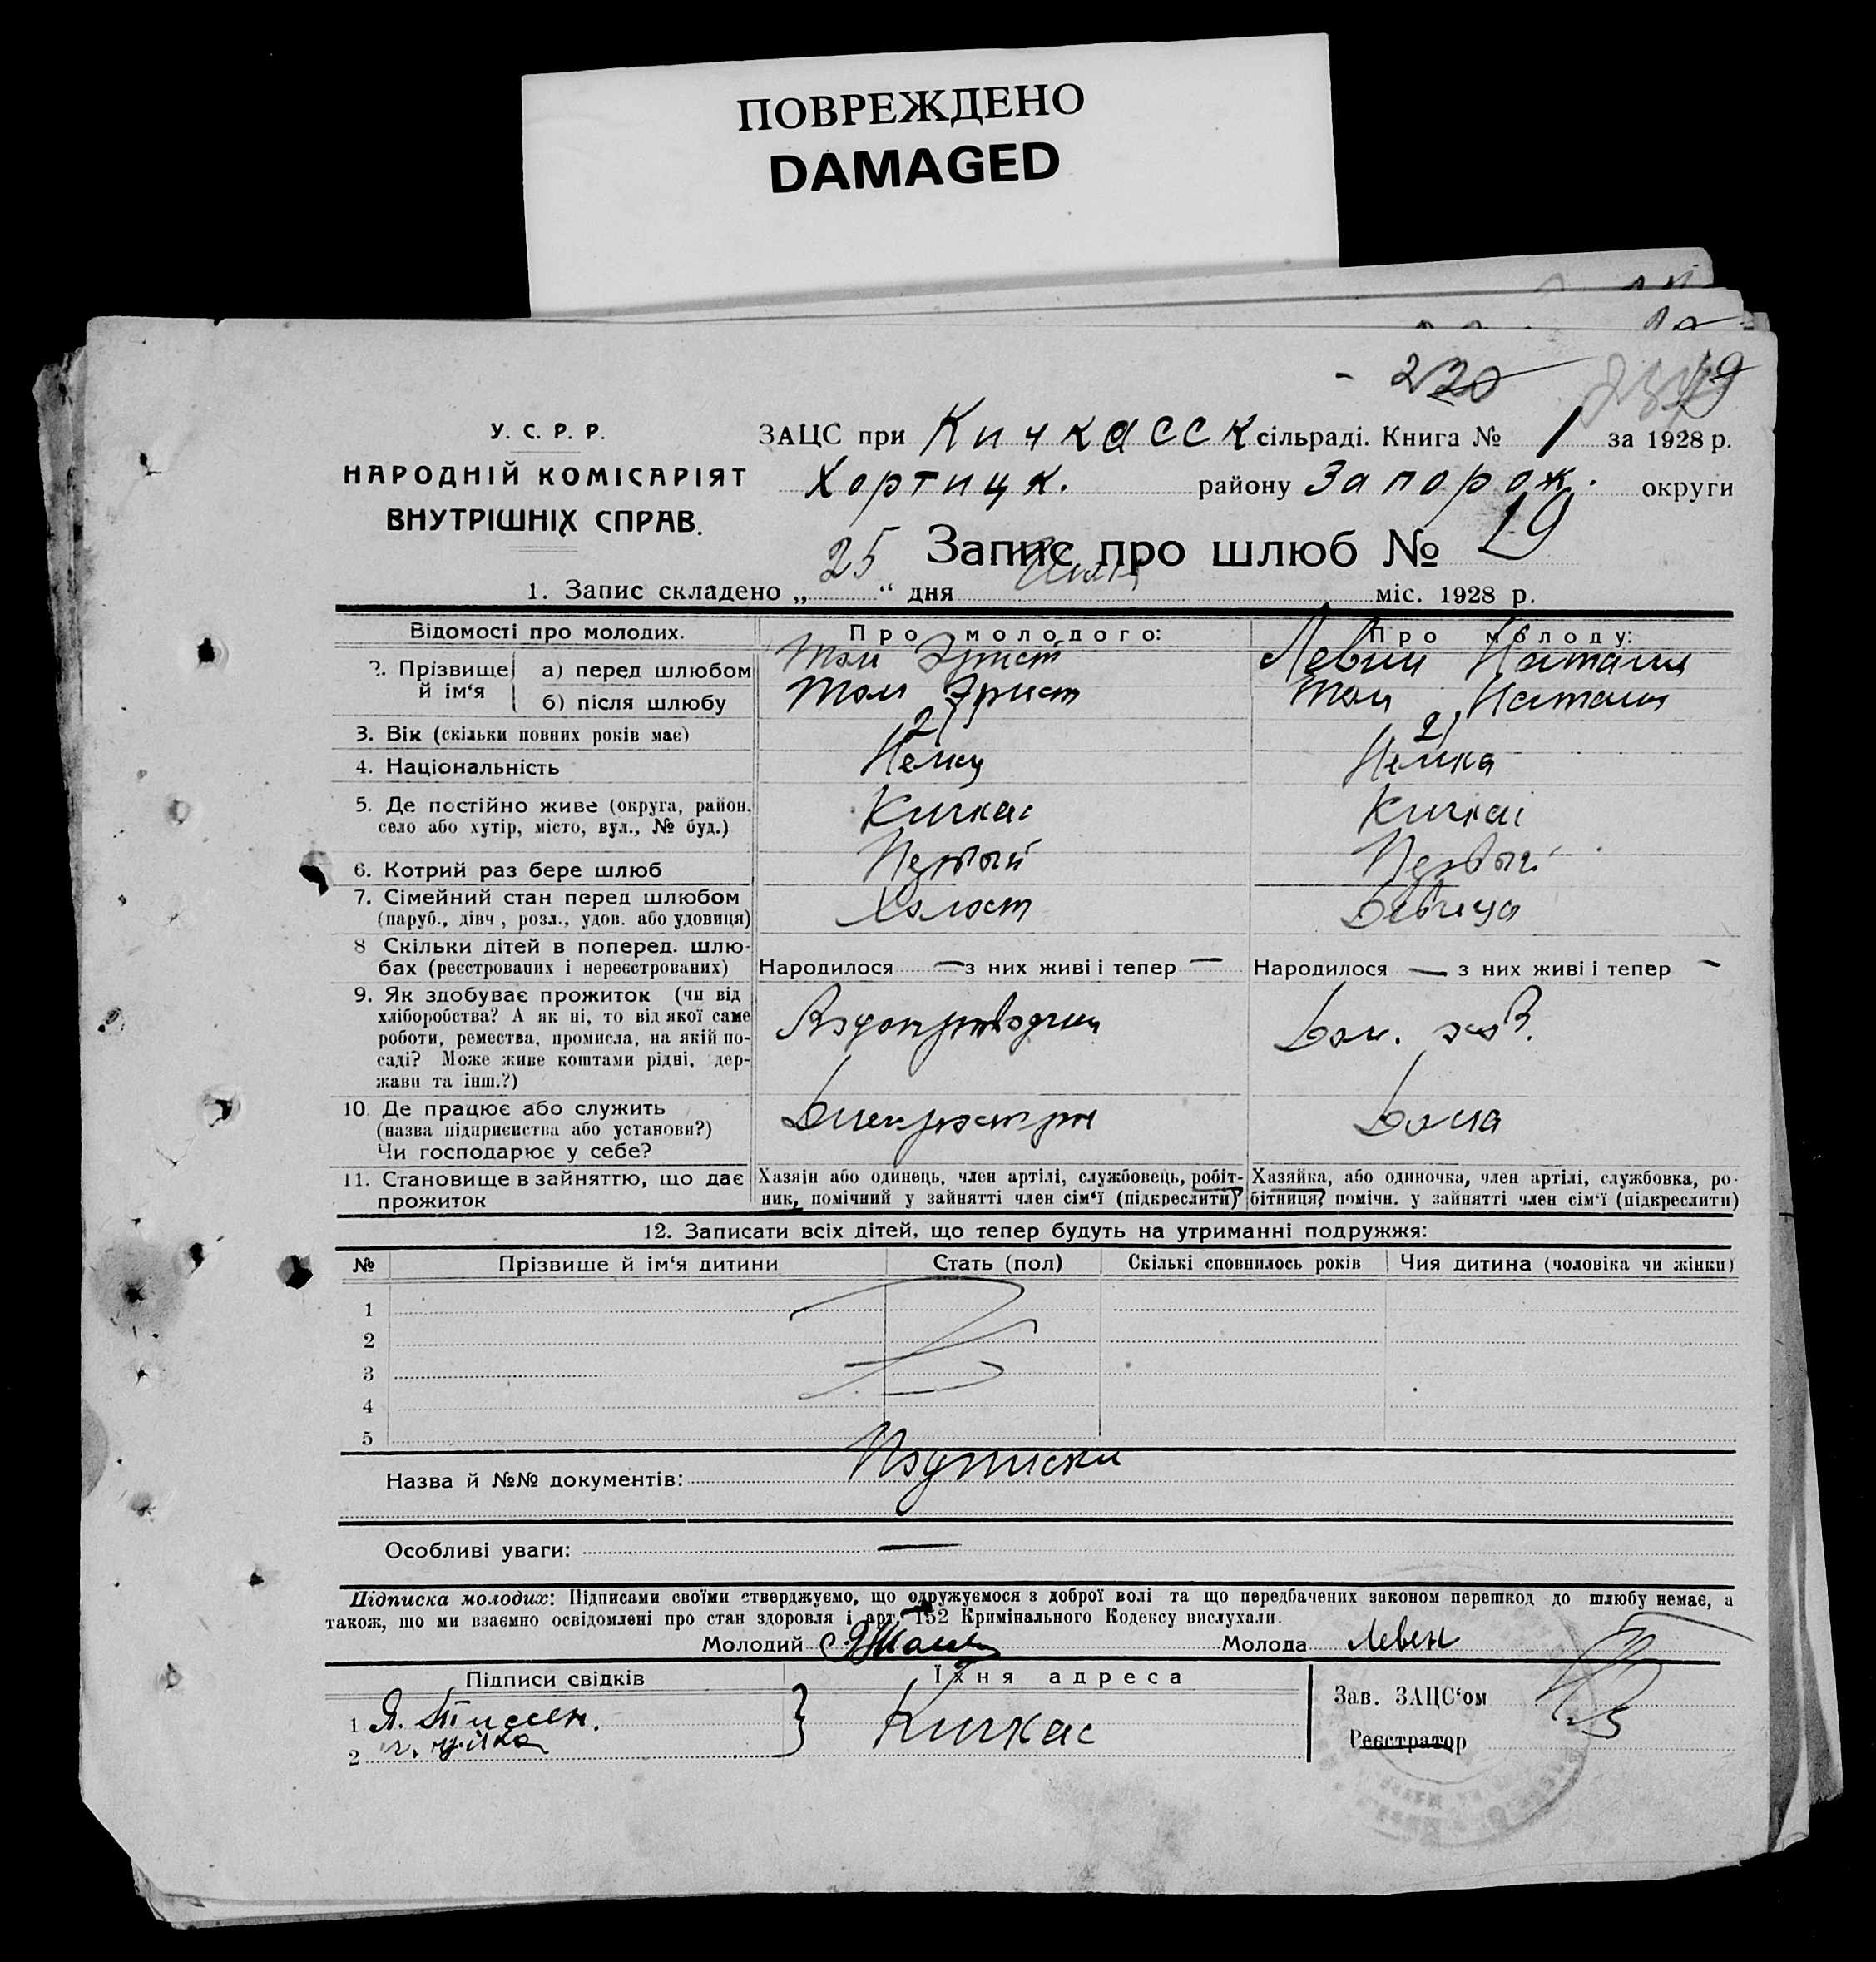 ПОВРЕЖДЕНО
DAMAGED
- 220
У. С. Р. Р.
НАРОДНІЙ КОМІСАРІЯТ
ВНУТРІШНІХ СПРАВ.
ЗАЦС при Кичкасск сільраді. Книга № 1 за 1928 р.
Хортицк. району Запорож. округи
Запис про шлюб № 19
1. Запис складено „ 25 “ дня міс. 1928 р.
Відомості про молодих. Про молодого: Про молоду:
2. Прізвище й ім‘я
а) перед шлюбом Наталия
б) після шлюбу Наталия
3. Вік (скільки повних років має) 21 21
4. Національність Немец Немка
5. Де постійно живе (округа, район, Кичкас Кичкас
село або хутір, місто, вул., № буд.)
6. Котрий раз бере шлюб Первый Первый
7. Сімейний стан перед шлюбом Холост Девица
(паруб., дівч., розл., удов. або удовиця)
8 Скільки дітей в поперед. шлю-
бах (реєстрованих і нереєстрованих) Народилося — з них живі і тепер — Народилося — з них живі і тепер —
9. Як здобуває прожиток (чи від
хліборобства? А як ні, то від якої саме Водопроводчик Дом. хоз.
роботи, ремества, промисла, на якій по-
саді? Може живе коштами рідні, дер-
жави та інш.?)
10. Де працює або служить Днепрострой Дома
(назва підприємства або установи?)
Чи господарює у себе?
11. Становище в зайняттю, що дає прожиток
Хазяін або одинець, член артілі, службовець, робіт-
ник, помічний у зайнятті член сім‘ї (підкреслити)
Хазяйка, або одиночка, член артілі, службовка, ро-
бітниця, помічн. у зайнятті член сім‘ї (підкреслити)
12. Записати всіх дітей, що тепер будуть на утриманні подружжя:
№ Прізвище й ім‘я дитини Стать (пол) Скількі сповнилось років Чия дитина (чоловіка чи жінки)
1
2
3
4
5
Назва й №№ документів: Подписки
Особливі уваги: —
Підписка молодих: Підписами своїми стверджуємо, що одружуємося з доброї волі та що передбачених законом перешкод до шлюбу немає, а
також, що ми взаємно освідомлені про стан здоровля і арт. 152 Кримінального Кодексу вислухали.
Молодий Молода Левен
Підписи свідків Їхня адреса
1 Я. Тиссен. Кичкас
2
Зав. ЗАЦС‘ом
Реєстратор